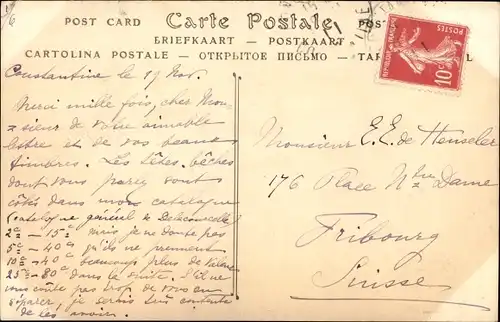 16
POST CARD
Carte Postale
POS
БRIEFKAART — POSTKAART
CARTOLINA POSTALE — ОТКРЫТОЕ ПИСЬМО — TAR L
REPUBLIQUE FRANÇAISE
10
Constantine le 17 Nov.
Merci mille fois, cher Mon-
sieur de votre aimable
lettre et de vos beaux
timbres. Les têtes-bêches
dont vous parlez sont
côtés dans mon catalogue
(catalogue général de
2c — 15c mais je ne doute pas
5c — 40c qu'ils ne prennent
10c — 40c beaucoup plus de valeur
25c — 80c dans la suite. S'il ne
vous coûte pas trop de vous en
séparer, je serais très contente
de les avoir.
Monsieur E. E. de Henseler
176 Place Ntre Dame
Fribourg
Suisse